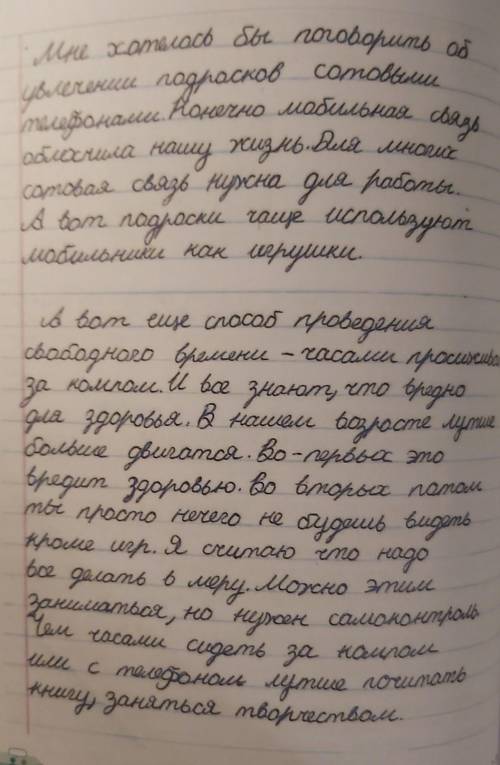 Мне хотелось бы поговорить об
увлечении подрасков сотовыми
телефонами. Конечно мобильная связь
облосчила нашу жизнь. Для многих
сотовая связь нужна для работы.
А вот подроски чаще используют
мобильники как игрушки.
А вот еще способ проведения
свободного времени - часами просижива
за компом. И все знают, что вредно
для здоровья. В нашем возрасте лутше
больше двигатся. Во-первых это
вредит здоровью. Во вторых потом
ты просто нечего не будешь видеть
кроме игр. Я считаю что надо
все делать в меру. Можно этим
заниматься, но нужен самоконтроль
Чем часами сидеть за компом
или с телефоном лутше почитать
книгу, заняться творчеством.